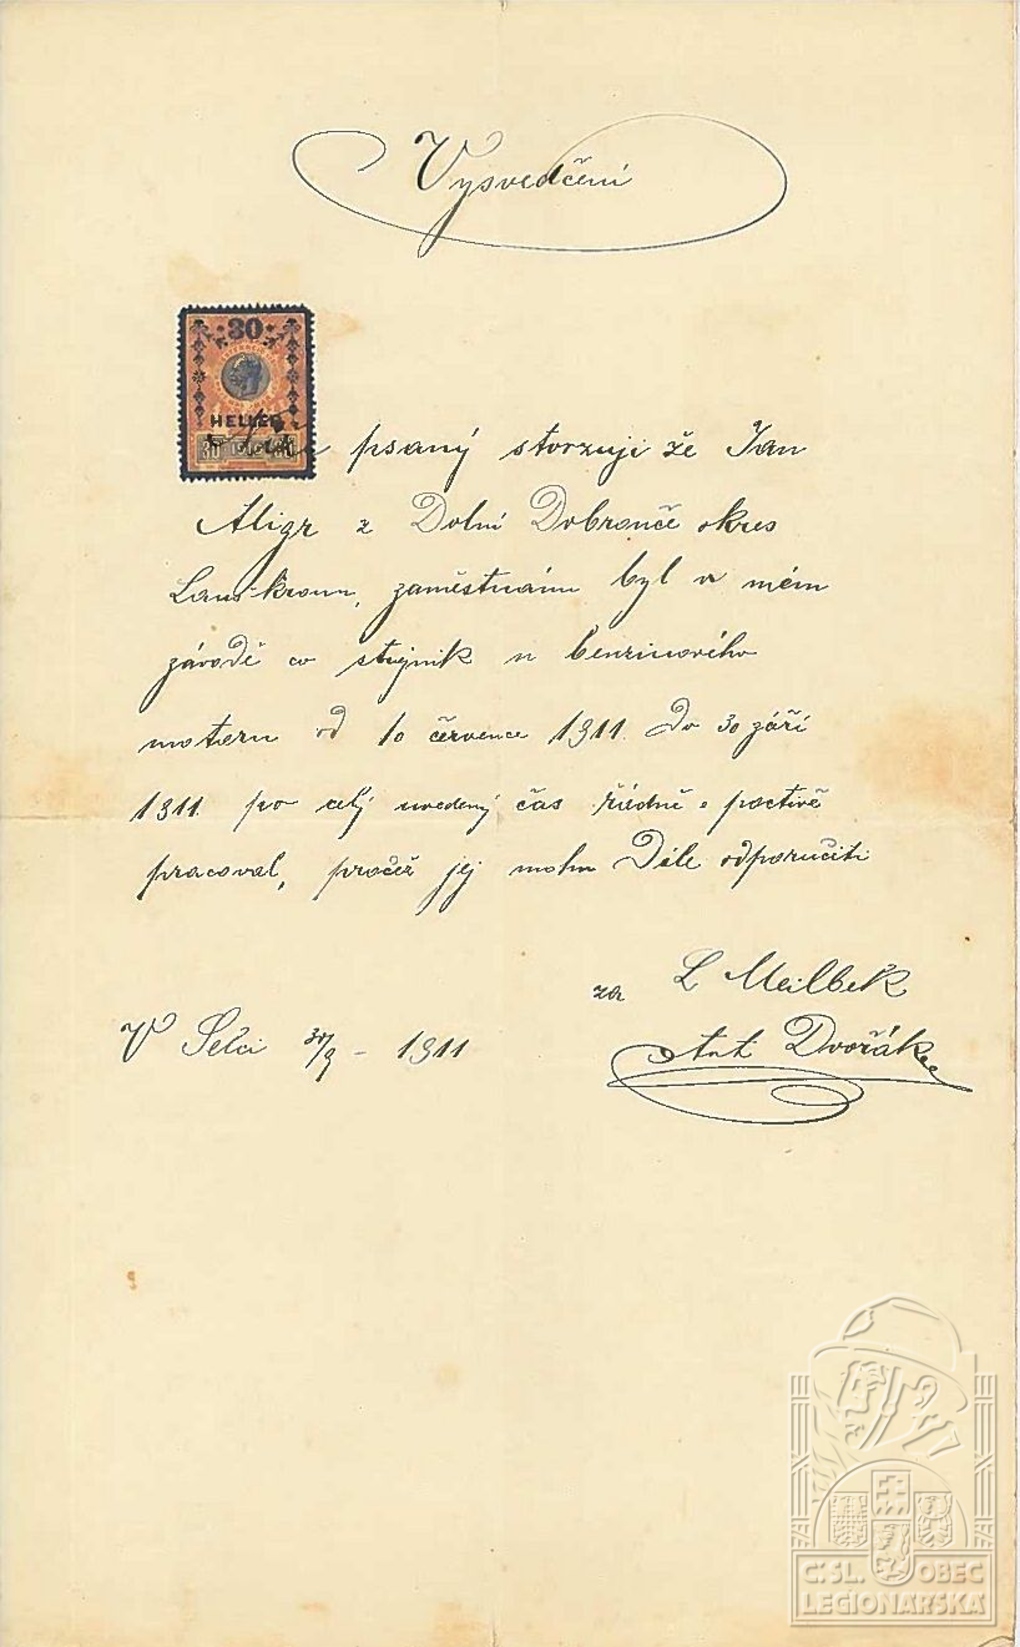 Vysvedčení
30
HELLER
Níže psaný stvrzuji že Jan
Aligr z Dolní Dobrouče okres
Landškroun, zaměstnánn byl v mém
závodě co strojnik u benzinového
motoru od 10 července 1911. Do 30 září
1911. po celý uvedený čas řádně a poctivě
pracoval, pročež jej mohu Dále odporučiti
za L Meilbek
V Selči 30/9 - 1911
Ant Dvořák
Č.SL. OBEC
LEGIONÁŘSKÁ